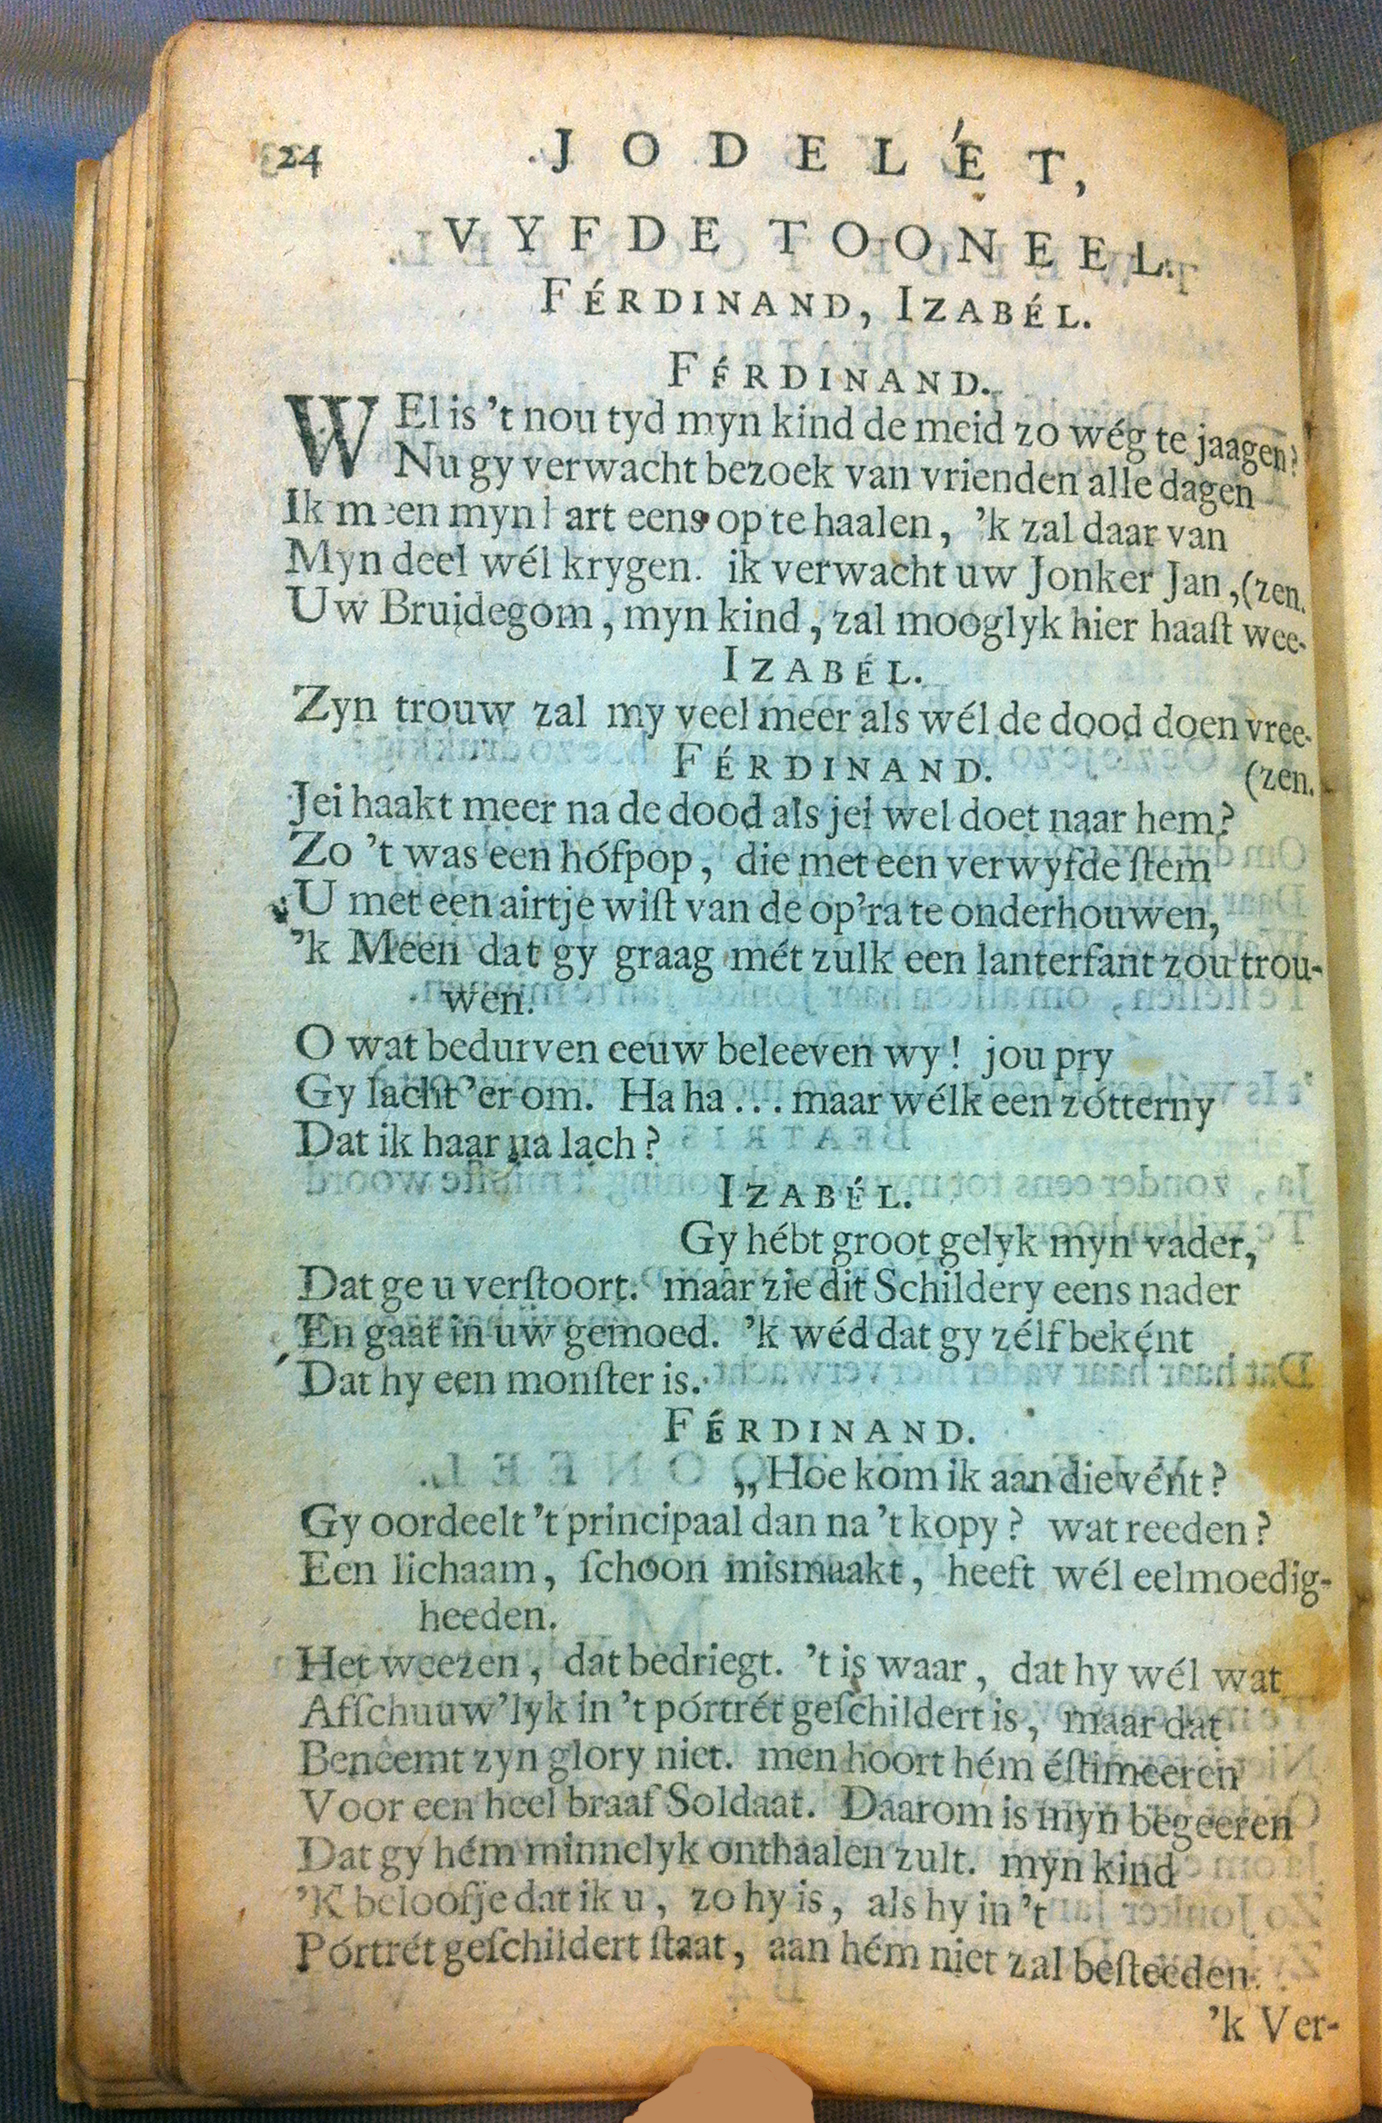 24 JODELÉT,
VYFDE TOONEEL.
FÉRDINAND, IZABÉL.
FÉRDINAND.
WEl is 't nou tyd myn kind de meid zo wég te jaagen?
Nu gy verwacht bezoek van vrienden alle dagen
Ik meen myn hart eens op te haalen, 'k zal daar van
Myn deel wél krygen. ik verwacht uw Jonker Jan, (zen.
Uw Bruidegom, myn kind, zal mooglyk hier haaſt wee-
IZABÉL.
Zyn trouw zal my veel meer als wél de dood doen vree-
FÉRDINAND. (zen.
Jei haakt meer na de dood als jei wel doet naar hem?
Zo 't was een hófpop, die met een verwyfde ſtem
U met een airtje wiſt van de op'ra te onderhouwen,
'k Meen dat gy graag mét zulk een lanterfant zou trou-
wen.
O wat bedurven eeuw beleeven wy! jou pry
Gy lacht 'er om. Ha ha... maar wélk een zótterny
Dat ik haar na lach?
IZABÉL.
Gy hébt groot gelyk myn vader,
Dat ge u verſtoort. maar zie dit Schildery eens nader
En gaat in uw gemoed. 'k wéd dat gy zélf beként
Dat hy een monſter is.
FÉRDINAND.
„Hoe kom ik aan die vént?
Gy oordeelt 't principaal dan na 't kopy? wat reeden?
Een lichaam, ſchoon mismaakt, heeft wél eelmoedig-
heeden.
Het weezen, dat bedriegt. 't is waar, dat hy wél wat
Afſchuuw'lyk in 't pórtrét geſchildert is, maar dat
Beneemt zyn glory niet. men hoort hém éſtimeeren
Voor een heel braaf Soldaat. Daarom is myn begeeren
Dat gy hém minnelyk onthaalen zult. myn kind
'K beloofje dat ik u, zo hy is, als hy in 't
Pórtrét geſchildert ſtaat, aan hém niet zal beſteeden.
'k Ver-